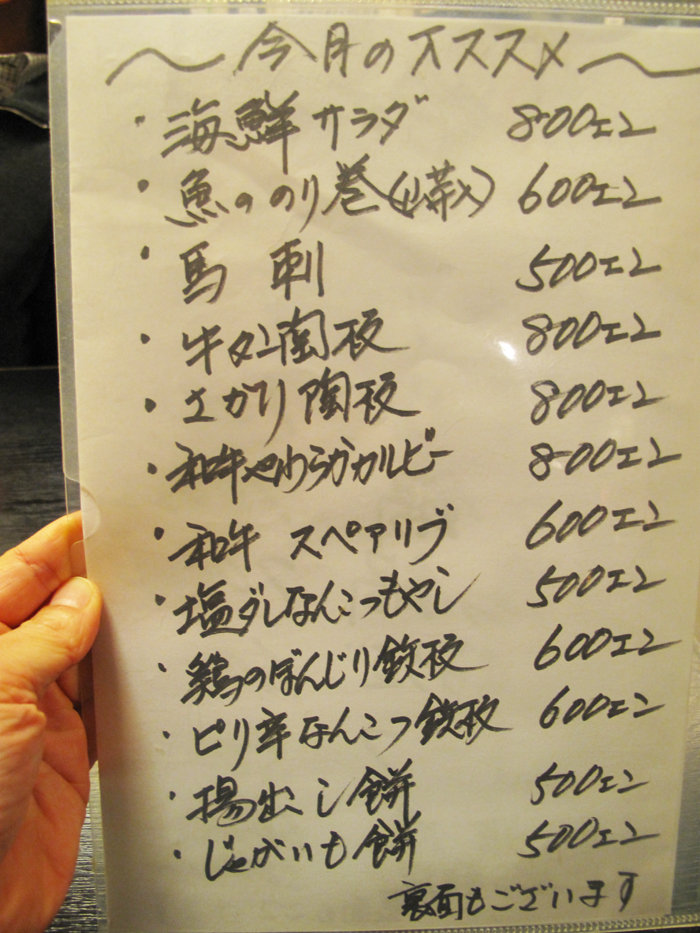 ～今月のオススメ～
・海鮮サラダ 800エン
・魚ののり巻 600エン
・馬刺 500エン
・牛タン陶板 800エン
・さがり陶板 800エン
・和牛やわらかカルビー 800エン
・和牛 スペアリブ 600エン
・塩ダレなんこつもやし 500エン
・鶏のぼんじり鉄板 600エン
・ピリ辛なんこつ鉄板 600エン
・揚出し餅 500エン
・じゃがいも餅 500エン
裏面もございます